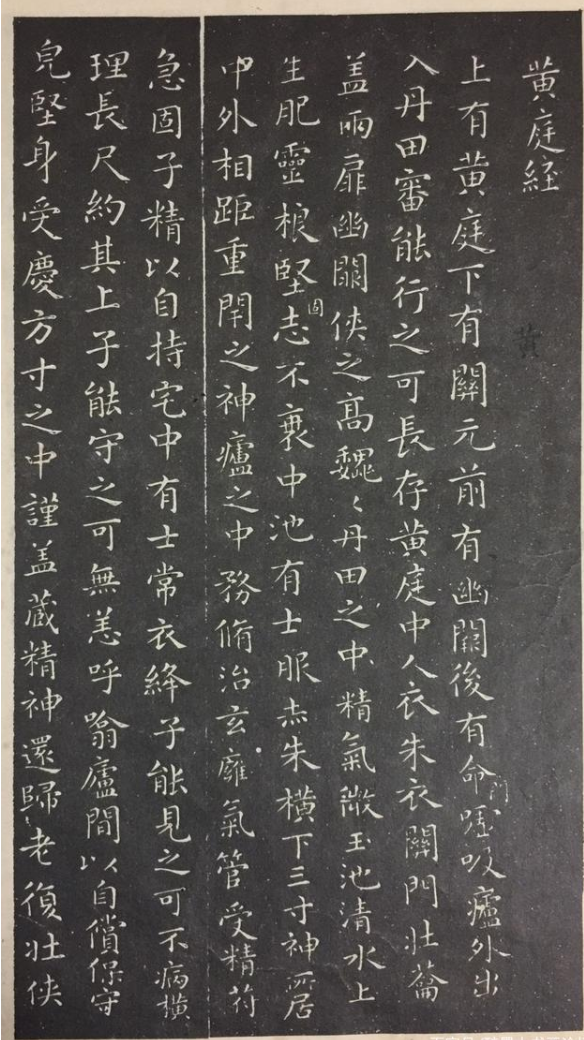 黄庭經
上有黄庭下有關元前有幽關後有命門噓吸廬外出
入丹田審能行之可長存黄庭中人衣朱衣關門壯籥
盖兩扉幽關俠之高魏〻丹田之中精氣微玉池清水上
生肥靈根堅固志不衰中池有士服赤朱横下三寸神所居
中外相距重閇之神廬之中務脩治玄廱氣管受精符
急固子精以自持宅中有士常衣絳子能見之可不病横
理長尺約其上子能守之可無恙呼噏廬間以自償保守
皃堅身受慶方寸之中謹盖藏精神還歸老復壯俠